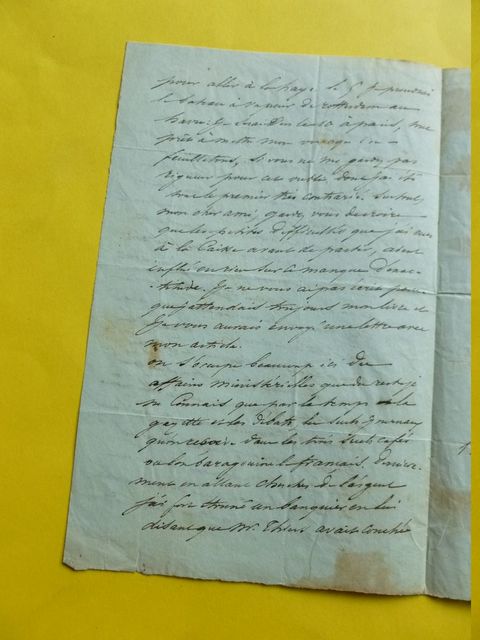 pour aller à la haye. le 5 je prendrai
le bateau à vapeur de rotterdam au
havre. Je serai dès le 10 à paris, tout
prêt à mettre mon voyage en
feuilletons, si vous ne me gardez pas
rigueur pour cet oubli dont j'ai été
tout le premier très contrarié. Surtout
mon cher ami, gardez vous de croire
que les petites difficultés que j'ai eues
à la Caisse avant de partir, aient
influé en rien sur ce manque d'exac
titude. Je ne vous ai pas écrit parce
que j'attendais toujours mon livre et
Je vous aurais envoyé une lettre avec
mon article.
on s'occupe beaucoup ici des
affaires ministérielles que du reste je
ne Connais que par le temps la
gazette et les débats, les seuls journaux
qu'on reçoive dans les trois seuls cafés
où l'on baragouine le français. Dernière-
ment en allant chercher de l'argent
j'ai fort étonné un banquier en lui
disant que Mr. Thiers avait